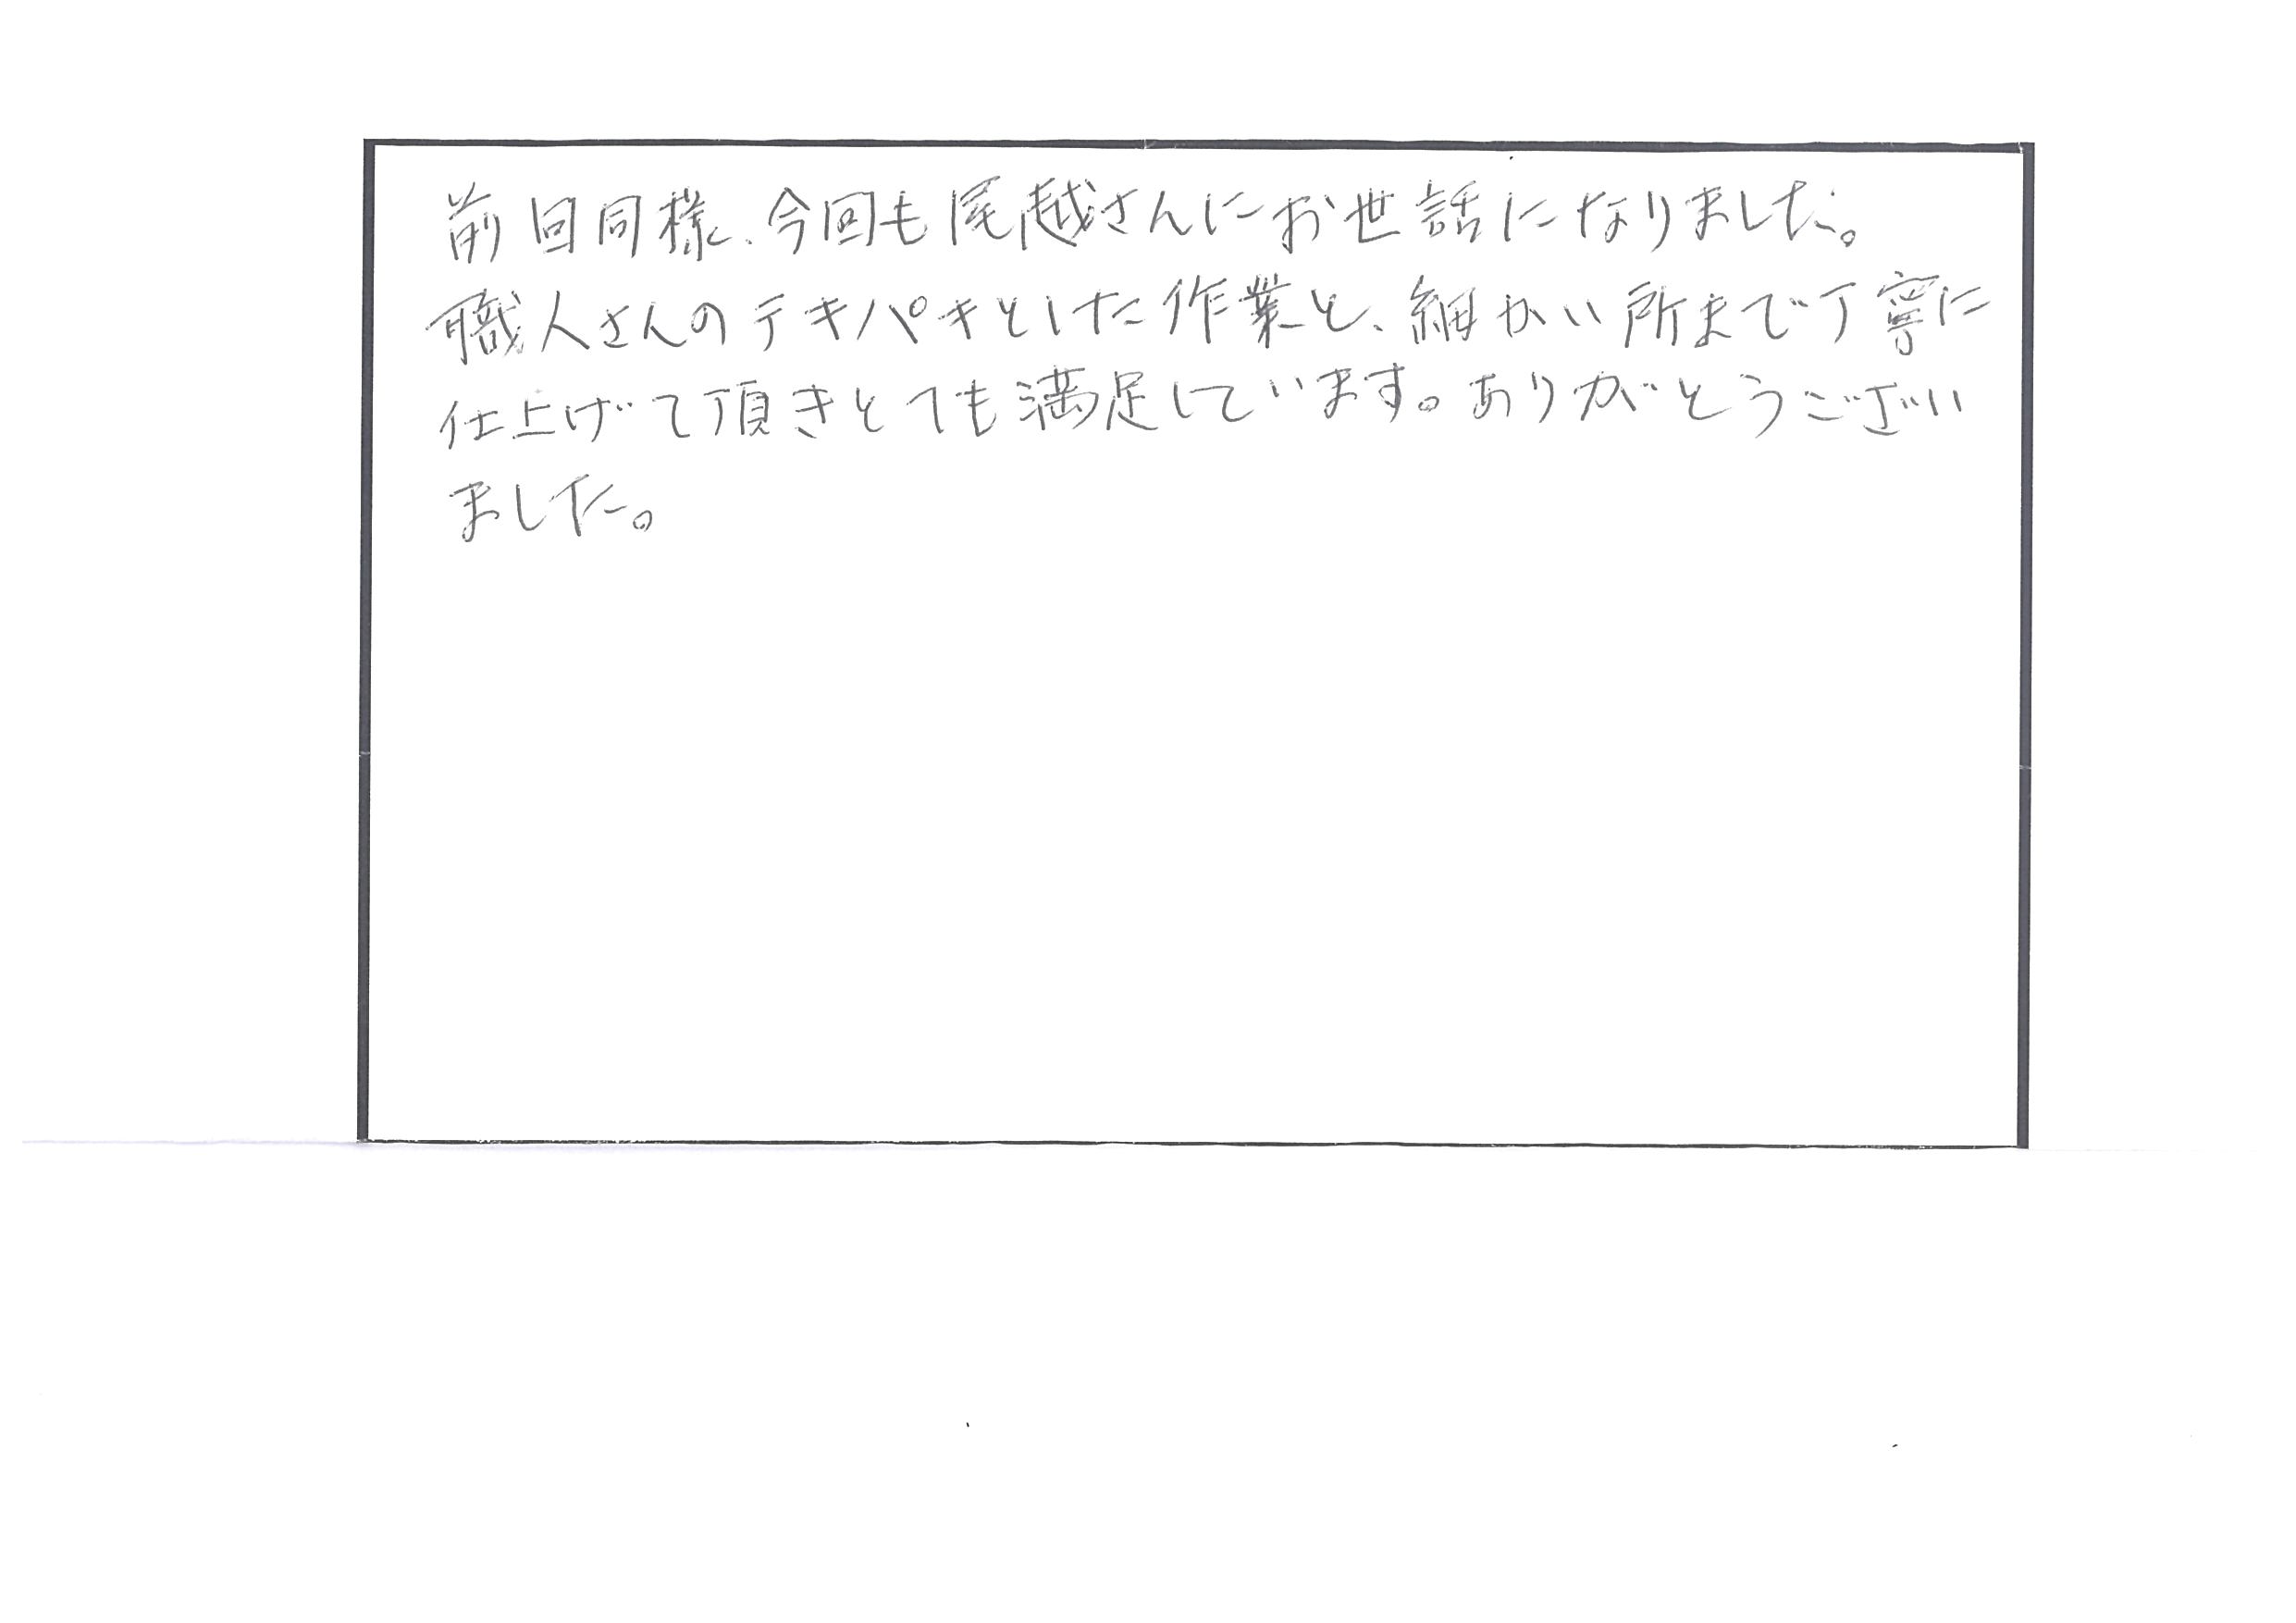 前回同様、今回も尾越さんにお世話になりました。
職人さんのテキパキとした作業と、細かい所まで丁寧に
仕上げて頂きとても満足しています。ありがとうござい
ました。